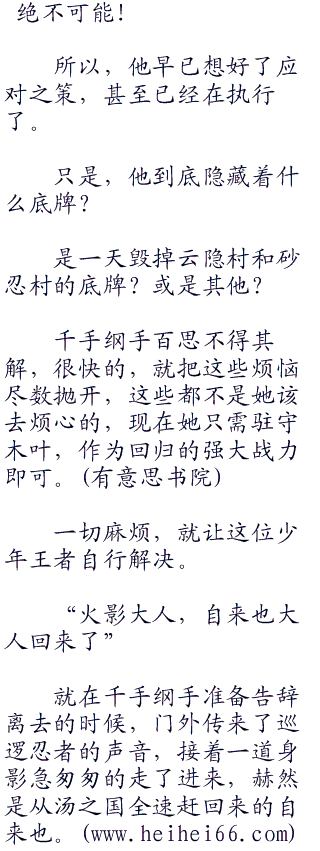 绝不可能!
所以，他早已想好了应
对之策，甚至已经在执行
了。
只是，他到底隐藏着什
么底牌？
是一天毁掉云隐村和砂
忍村的底牌？或是其他？
千手纲手百思不得其
解，很快的，就把这些烦恼
尽数抛开，这些都不是她该
去烦心的，现在她只需驻守
木叶，作为回归的强大战力
即可。(有意思书院)
一切麻烦，就让这位少
年王者自行解决。
“火影大人，自来也大
人回来了”
就在千手纲手准备告辞
离去的时候，门外传来了巡
逻忍者的声音，接着一道身
影急匆匆的走了进来，赫然
是从汤之国全速赶回来的自
来也。(www.heihei66.com)